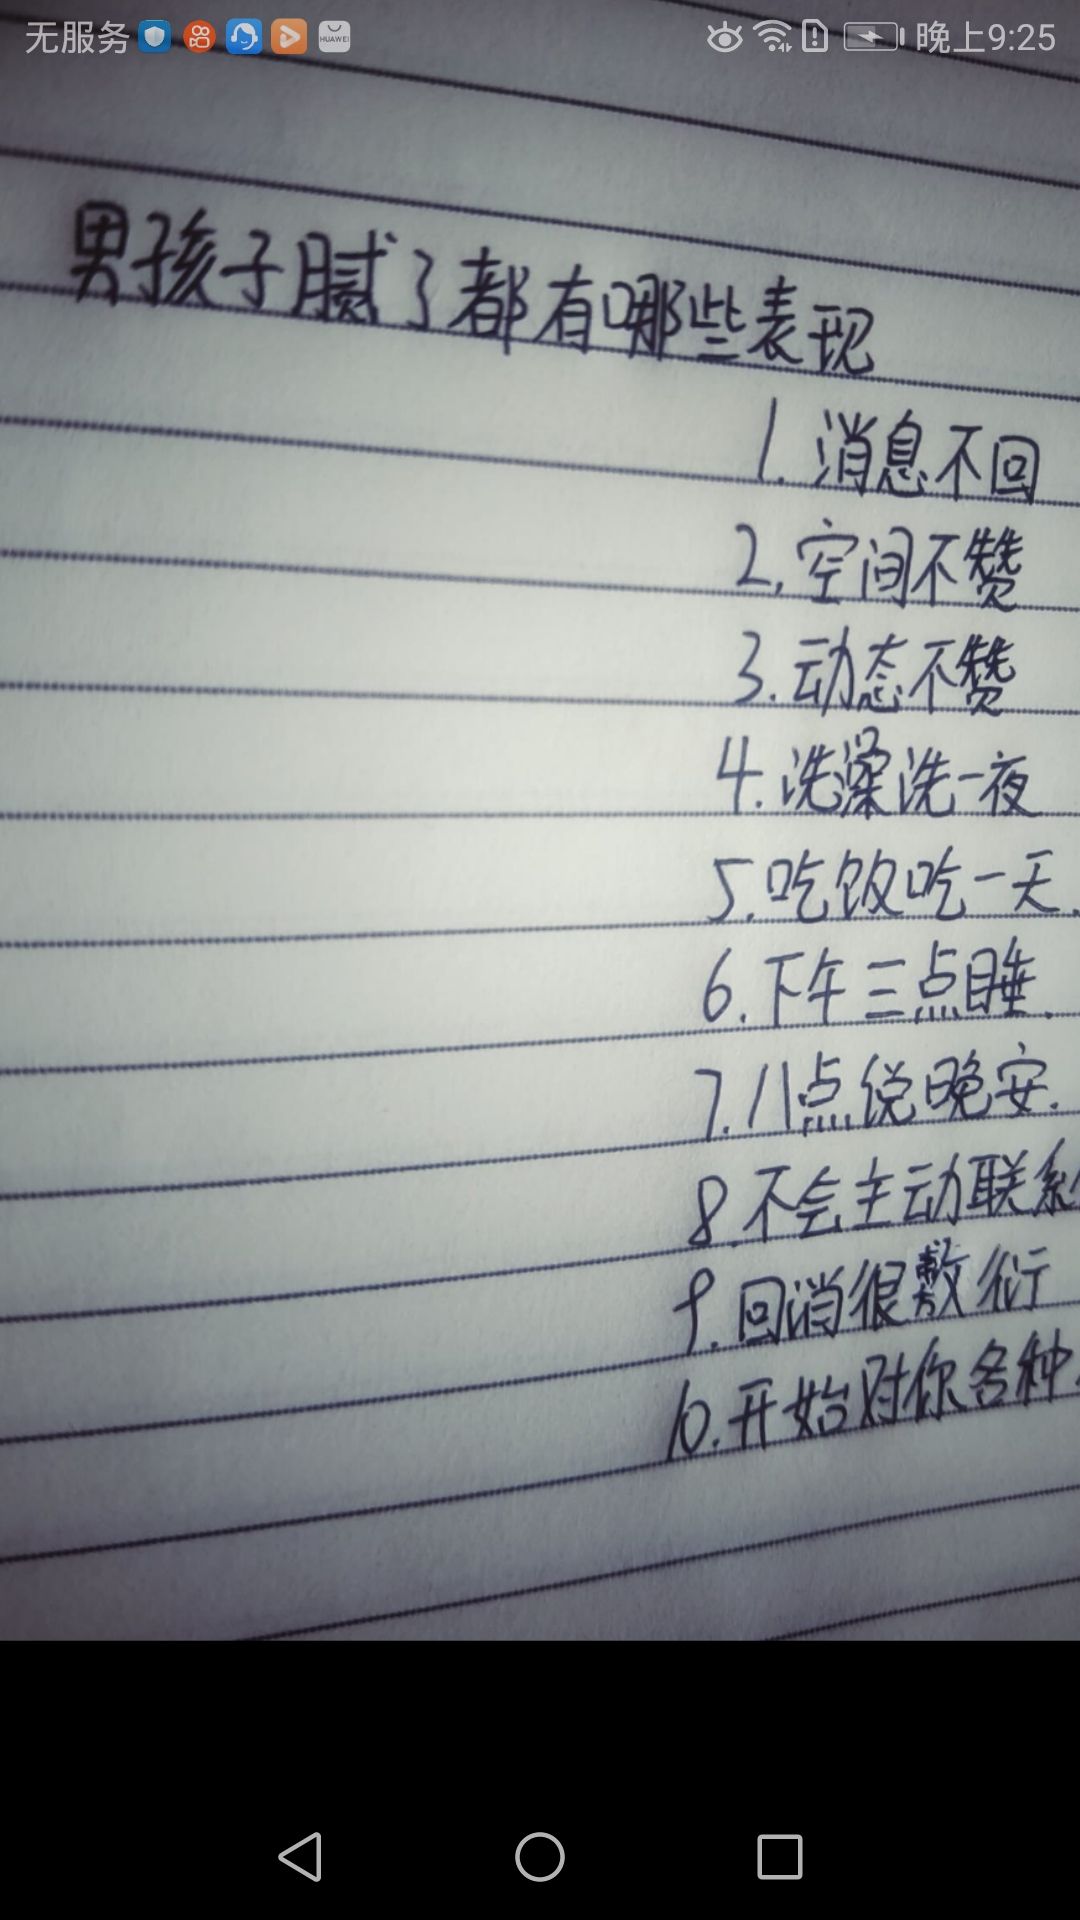 无服务
HUAWEI
晚上9:25
男孩子腻了都有哪些表现
1.消息不回
2.空间不赞
3.动态不赞
4.洗澡洗一夜
5.吃饭吃一天.
6.下午三点睡.
7.八点说晚安.
8.不会主动联系
9.回消很敷衍
10.开始对你各种